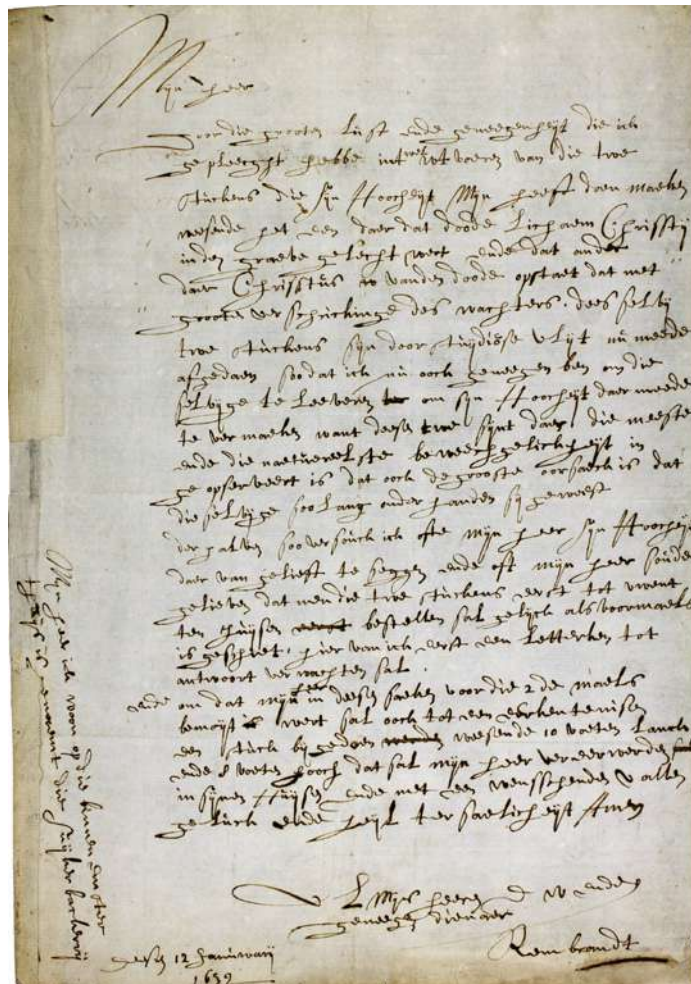 Mijn heer
door die grooten lust ende geneegenheijt die ick
gepleecht hebbe int wel wtvoeren van die twe
stuckens die sijn Hoocheijt mijn heeft doen maeken
weesende het een daer dat doode lichaem Chrisstij
in den graeve gelecht wert ende dat ander
daer Chrisstus van den doode opstaet dat met
groote verschrickinge des wachters. dees selvij
twe stuckens sijn door stuijdiose vlijt nu meede
afgedaen soodat ick nu ooch geneegen ben om die
selvijge te leeveren om sijn Hoocheijt daer meede
te vermaeken want deesen twe sijnt daer die meeste
ende die naetuereelste beweechgelickheijt in
geopserveert is dat oock de grooste oorsaeck is dat
die selvijge soo lang onder handen sij geweest
derhalven soo versouck ick ofte mijn heer sijn Hoocheijt
daer van gelieft te seggen ende oft mijn heer soude
gelieven dat men die twe stuckens eerst tot uwent
ten huijsen bestellen sal gelijck als voormaels
is geschiet. hier van ick eerst een letterken tot
antwoort verwachten sal.
ende om dat mijn heer in deesen saeken voor die 2de maels
bemoijt wert sal oock tot een eerkentenisse
een stuck bij gedaen weesende 10 voeten lanck
ende 8 voeten hooch dat sal mijn heer vereerwerden
in sijnen Huijsen ende met een wensschenden u allen
geluck ende heijl ter saelicheijt Amen
U E Mijn heere D W ende
geneegen dienaer
Rembrandt
deesen 12 Januwarij
1639
Mijn heer ick woon op die binnen emster
thuijs is genaemt die suijkerbackerij